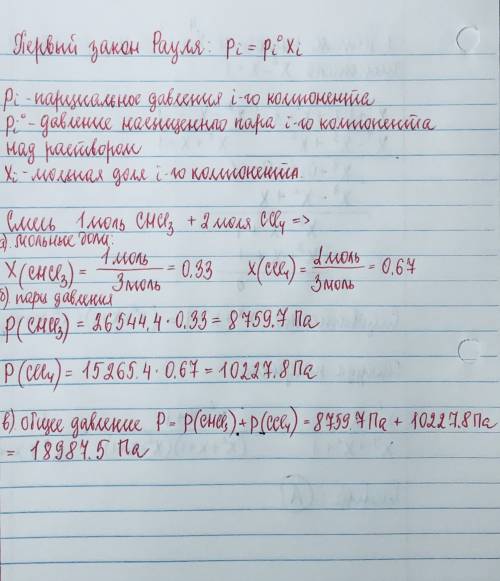 Первый закон Рауля: Pi = Pi° Xi
Pi - парциальное давления i-го компонента
Pi° - давление насыщенного пара i-го компонента
над раствором
Xi - мольная доля i-го компонента.
Смесь 1 моль CHCl3 + 2 моля CCl4 =>
а). мольные доли:
X(CHCl3) = 1 моль / 3 моль = 0.33 X(CCl4) = 2 моль / 3 моль = 0.67
б) пары давления
P(CHCl3) = 26544.4 · 0.33 = 8759.7 Па
P(CCl4) = 15265.4 · 0.67 = 10227.8 Па
в) общее давление P = P(CHCl3) + P(CCl4) = 8759.7 Па + 10227.8 Па
= 18987.5 Па